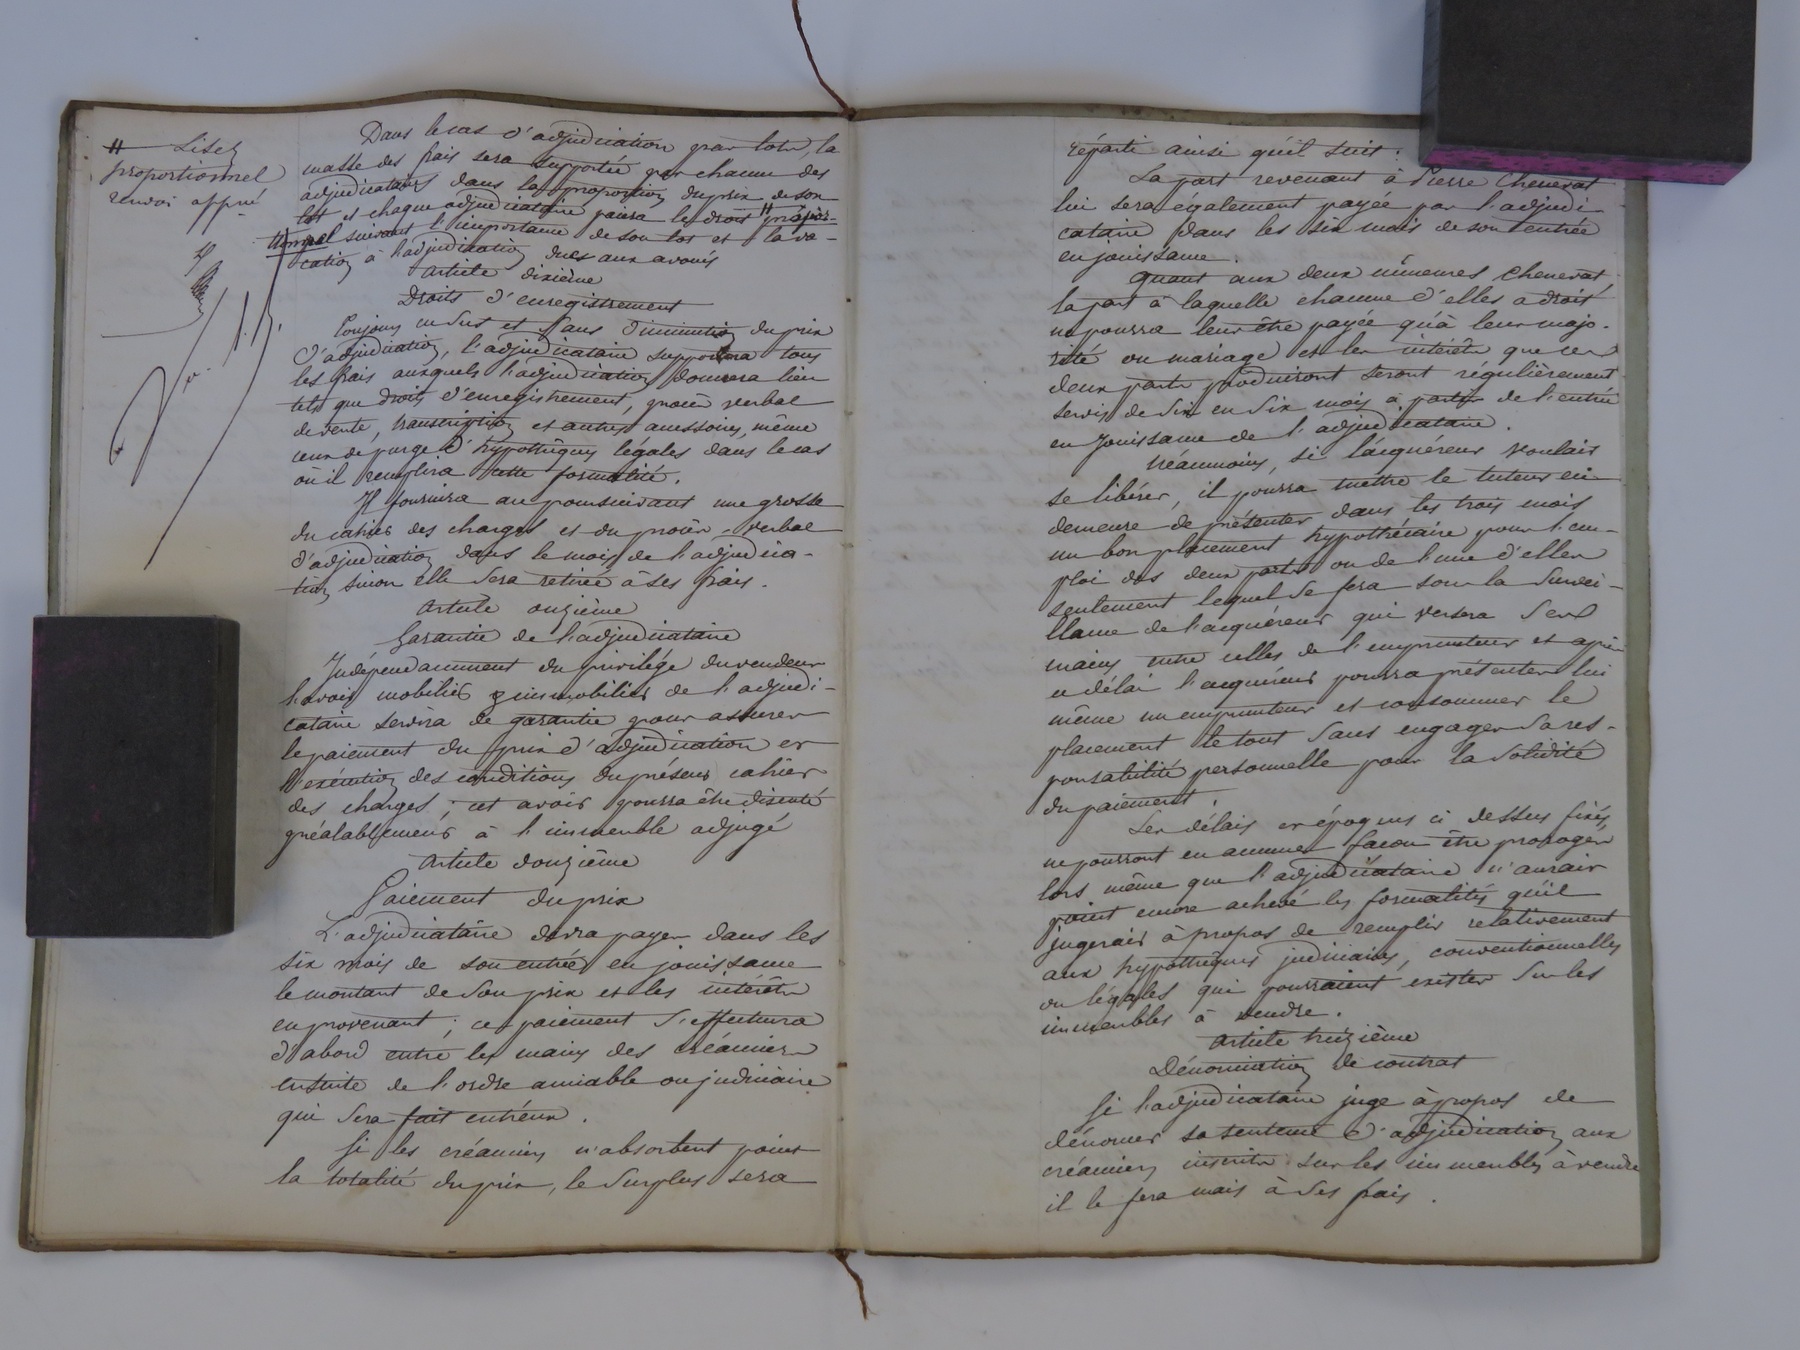 # Lisez
proportionnel
renvoi appvé
Dans le cas d'adjudication par lots, la
masse des frais sera supportée par chacun des
adjudicataires dans la proportion du prix de son
lot et chaque adjudicataire paiera le droit # propor-
tionnel suivant l'importance de son lot et la va-
cation à l'adjudication dues aux avoués
Article dixième
Droits d'enregistrement
Toujours en sus et sans diminution du prix
d'adjudication, l'adjudicataire supportera tous
les frais auxquels l'adjudication donnera lieu
tels que droits d'enregistrement, procès verbal
de vente, transcription et autres accessoires, même
ceux de purge d'hypothèques légales dans le cas
où il remplira cette formalité.
Il fournira au poursuivant une grosse
du cahier des charges et du procès-verbal
d'adjudication dans le mois de l'adjudica-
tion, sinon elle sera retirée à ses frais.
Article onzième
Garantie de l'adjudicataire
Indépendamment du privilège du vendeur
l'avoir mobilier & immobilier de l'adjudi-
cataire servira de garantie pour assurer
le paiement du prix d'adjudication et
l'exécution des conditions du présent cahier
des charges ; cet avoir pourra être discuté
préalablement à l'immeuble adjugé
Article douzième
Paiement du prix
L'adjudicataire devra payer dans les
six mois de son entrée en jouissance
le montant de son prix et les intérêts
en provenant ; ce paiement s'effectuera
d'abord entre les mains des créanciers
ensuite de l'ordre amiable ou judiciaire
qui sera fait entr'eux.
Si les créanciers n'absorbent point
la totalité du prix, le surplus sera
réparti ainsi qu'il suit :
La part revenant à Pierre Chenevat
lui sera également payée par l'adjudi
cataire dans les six mois de son entrée
en jouissance.
Quant aux deux mineures Chenevat
la part à laquelle chacune d'elles a droit
ne pourra leur être payée qu'à leur majo-
rité ou mariage et les intérêts que ces
deux parts produiront seront régulièrement
servis de six en six mois à partir de l'entrée
en jouissance de l'adjudicataire.
Néanmoins, si l'acquéreur voulait
se libérer, il pourra mettre le tuteur en
demeure de présenter dans les trois mois
un bon placement hypothécaire pour l'em-
ploi des deux parts ou de l'une d'elles
seulement lequel se fera sous la survei-
llance de l'acquéreur qui versera ses
mains entre celles de l'emprunteur et après
ce délai l'acquéreur pourra présenter lui
même un emprunteur et consommer le
placement le tout sans engager sa res-
ponsabilité personnelle pour la solidité
du paiement.
Les délais et époques ci dessus fixés
ne pourront en aucune façon être prorogés
lors même que l'adjudicataire n'aurait
point encore achevé les formalités qu'il
jugerait à propos de remplir relativement
aux hypothèques judiciaires, conventionnelles
ou légales qui pourraient exister sur les
immeubles à vendre.
Article treizième
Dénonciation de contrat
Si l'adjudicataire juge à propos de
dénoncer sa sentence d'adjudication aux
créanciers inscrits sur les immeubles à vendre
il le fera mais à ses frais.